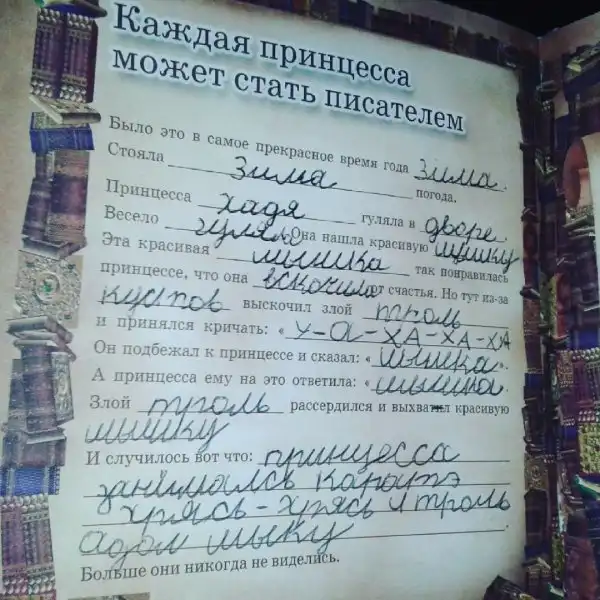 Каждая принцесса
может стать писателем
Было это в самое прекрасное время года зима.
Стояла зима погода.
Принцесса хадя гуляла в дворе.
Весело гуляла. Она нашла красивую мышку
Эта красивая мышика так понравилась
принцессе, что она вскочила от счастья. Но тут из-за
кустов выскочил злой троль
и принялся кричать: « У-А-ХА-ХА-ХА
Он подбежал к принцессе и сказал: « мышка».
А принцесса ему на это ответила: « мышка.
Злой троль рассердился и выхватил красивую
мышку
И случилось вот что: принцесса
занималась каратэ
хрясь-хрясь и троль
адал мыку.
Больше они никогда не виделись.